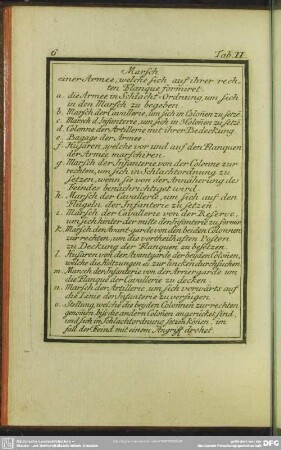 6
Tab. II
Marsch
einer Armee, welche sich auf ihrer rech-
ten Flanque formiret.
a. die Armee in Schlacht-Ordnung, um sich
in den Marsch zu begeben
b. Marsch der Cavallerie, um sich in Colonen zu setzē
c. Marsch d. Infanterie, um sich in
d. Colonne der Artillerie mit ihrer Bedeckung
e. Bagage der Armee
f. Husaren, welche vor und auf den Flanquen
der Armee marschiren.
g. Marsch der Infanterie von der Colonne zur
rechten, um sich in Schlachtordnung zu
setzen, wenn sie von der Annäherung des
Feindes benachrichtiget wird.
h. Marsch der Cavallerie, um sich auf den
Flügeln der Infanterie zu setzen
i. Marsch der Cavallerie von der Reserve,
um sich hinter der mitte der Infanterie zu formirē
k. Marsch der Avant-garde von den beiden Colonnen
zur rechten, um die vortheilhaften Posten
zu Deckung der Flanquen zu besetzen.
l. Husaren von der Avantgarde der beyden Colonen,
welche die Holtzungen zur lincken durchsuchen
m. Marsch der Infanterie von der Arriergarde um
die Flanque der Cavallerie zu decken
n. Marsch der Artillerie, um sich vorwärts auf
die Linie der Infanterie zu verfügen
o. Stellung, welche die beyden Colonnen zur rechten
genomen, biss die andern Colonen angerücket sind,
und sich in Schlachtordnung setzen könen, im
fall der Feind mit einem Angriff drohet.